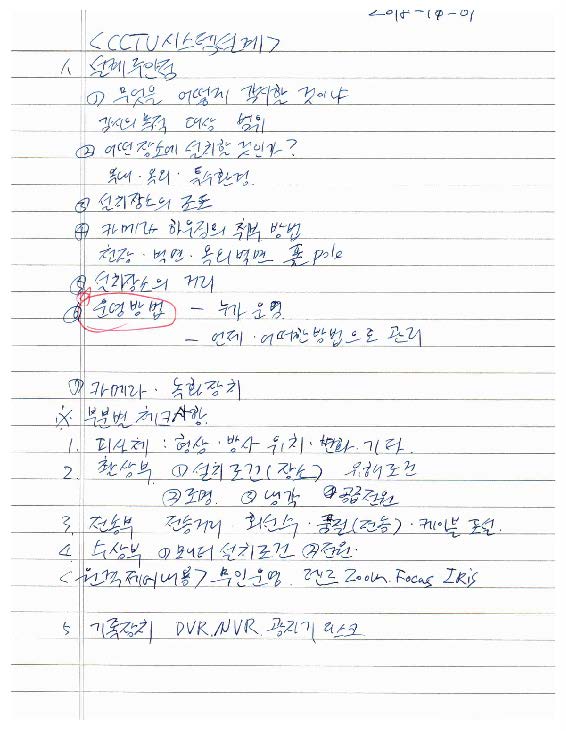 2018-10-01
<CCTV시스템설계>
1. 설계주안점
① 무엇을 어떻게 감시할 것이냐
감시의 목적 대상 범위
② 어떤장소에 설치할 것인가?
옥내·옥외·특수환경.
③ 설치장소의 조도
④ 카메라 하우징의 취부 방법
천장·벽면·옥외벽면 폴 pole
⑤ 설치장소의 거리
⑥ 운영방법 - 누가 운영
- 언제·어떠한방법으로 관리
⑦ 카메라·녹화장치
※ 부분별 체크사항.
1. 피사체 : 형상·방사 위치·변화.기타.
2. 촬상부 ①설치조건(장소) 유해조건
②조명. ③냉각 ④공급전원
3. 전송부 전송거리·회선수·품질(전송)·케이블 포설.
4. 수상부 ①모니터 설치조건 ②전원.
<원격제어내용> 무인운영. 렌즈 Zoom. Focus IRis
5 기록장치 DVR./NVR. 광자기 디스크